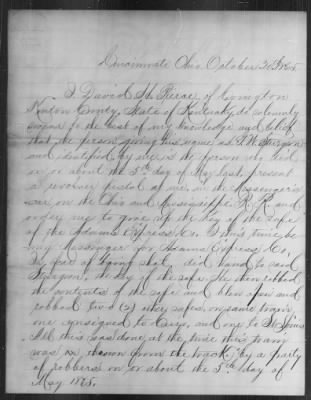 Cincinnati Ohio October 20th 1865.
I David H. Pierce, of Covington
Kenton County, State of Kentucky do solemnly
swear to the best of my knowledge and belief
that the person giving his name as
and identified by me, is the person who did
on or about the 5th day of May last, present
a revolver pistol at me, in the Messenger's
car, on the Ohio and Mississippi R.R. and
order me to give up the key of the safe
of the Adams Express Co. I this time be
ing Messenger for Adams Express Co.
by fear of being shot, did hand to said
the key of the safe. He then robbed
the contents of the safe and blew open and
robbed two (2) other safes, on same train
one consigned to Cairo, and one to St Louis
All this was done at the time this train
was thrown from the track, by a party
of robbers on or about the 5th day of
May 1865.